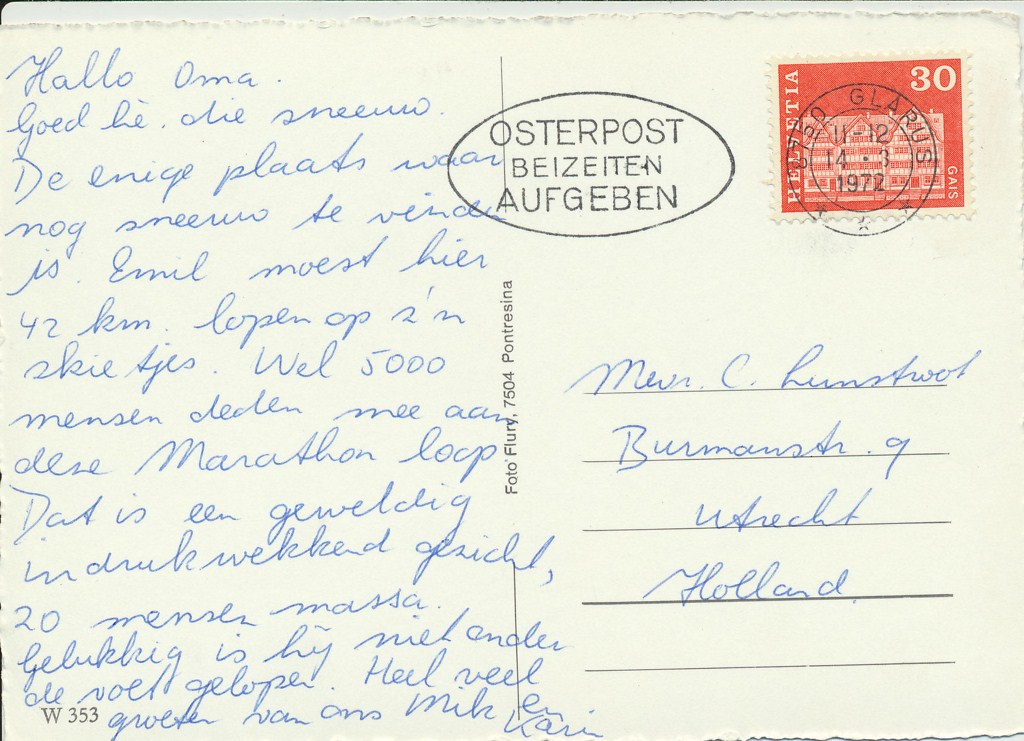 Hallo Oma.
Goed hè, die sneeuw.
De enige plaats waar
nog sneeuw te vinden
is. Emil moest hier
42 km. lopen op z'n
skietjes. Wel 5000
mensen deden mee aan
deze Marathon loop
Dat is een geweldig
indrukwekkend gezicht,
zo 'n mensen massa.
Gelukkig is hij niet onder
de voet gelopen. Heel veel
groeten van ons Mik en
Karin
W 353
Foto Flury, 7504 Pontresina
OSTERPOST
BEIZEITEN
AUFGEBEN
HELVETIA
30
GAIS
8750 GLARUS
11-12
14.3
1972
Mevr. C.
Burmanstr. 9
Utrecht
Holland.